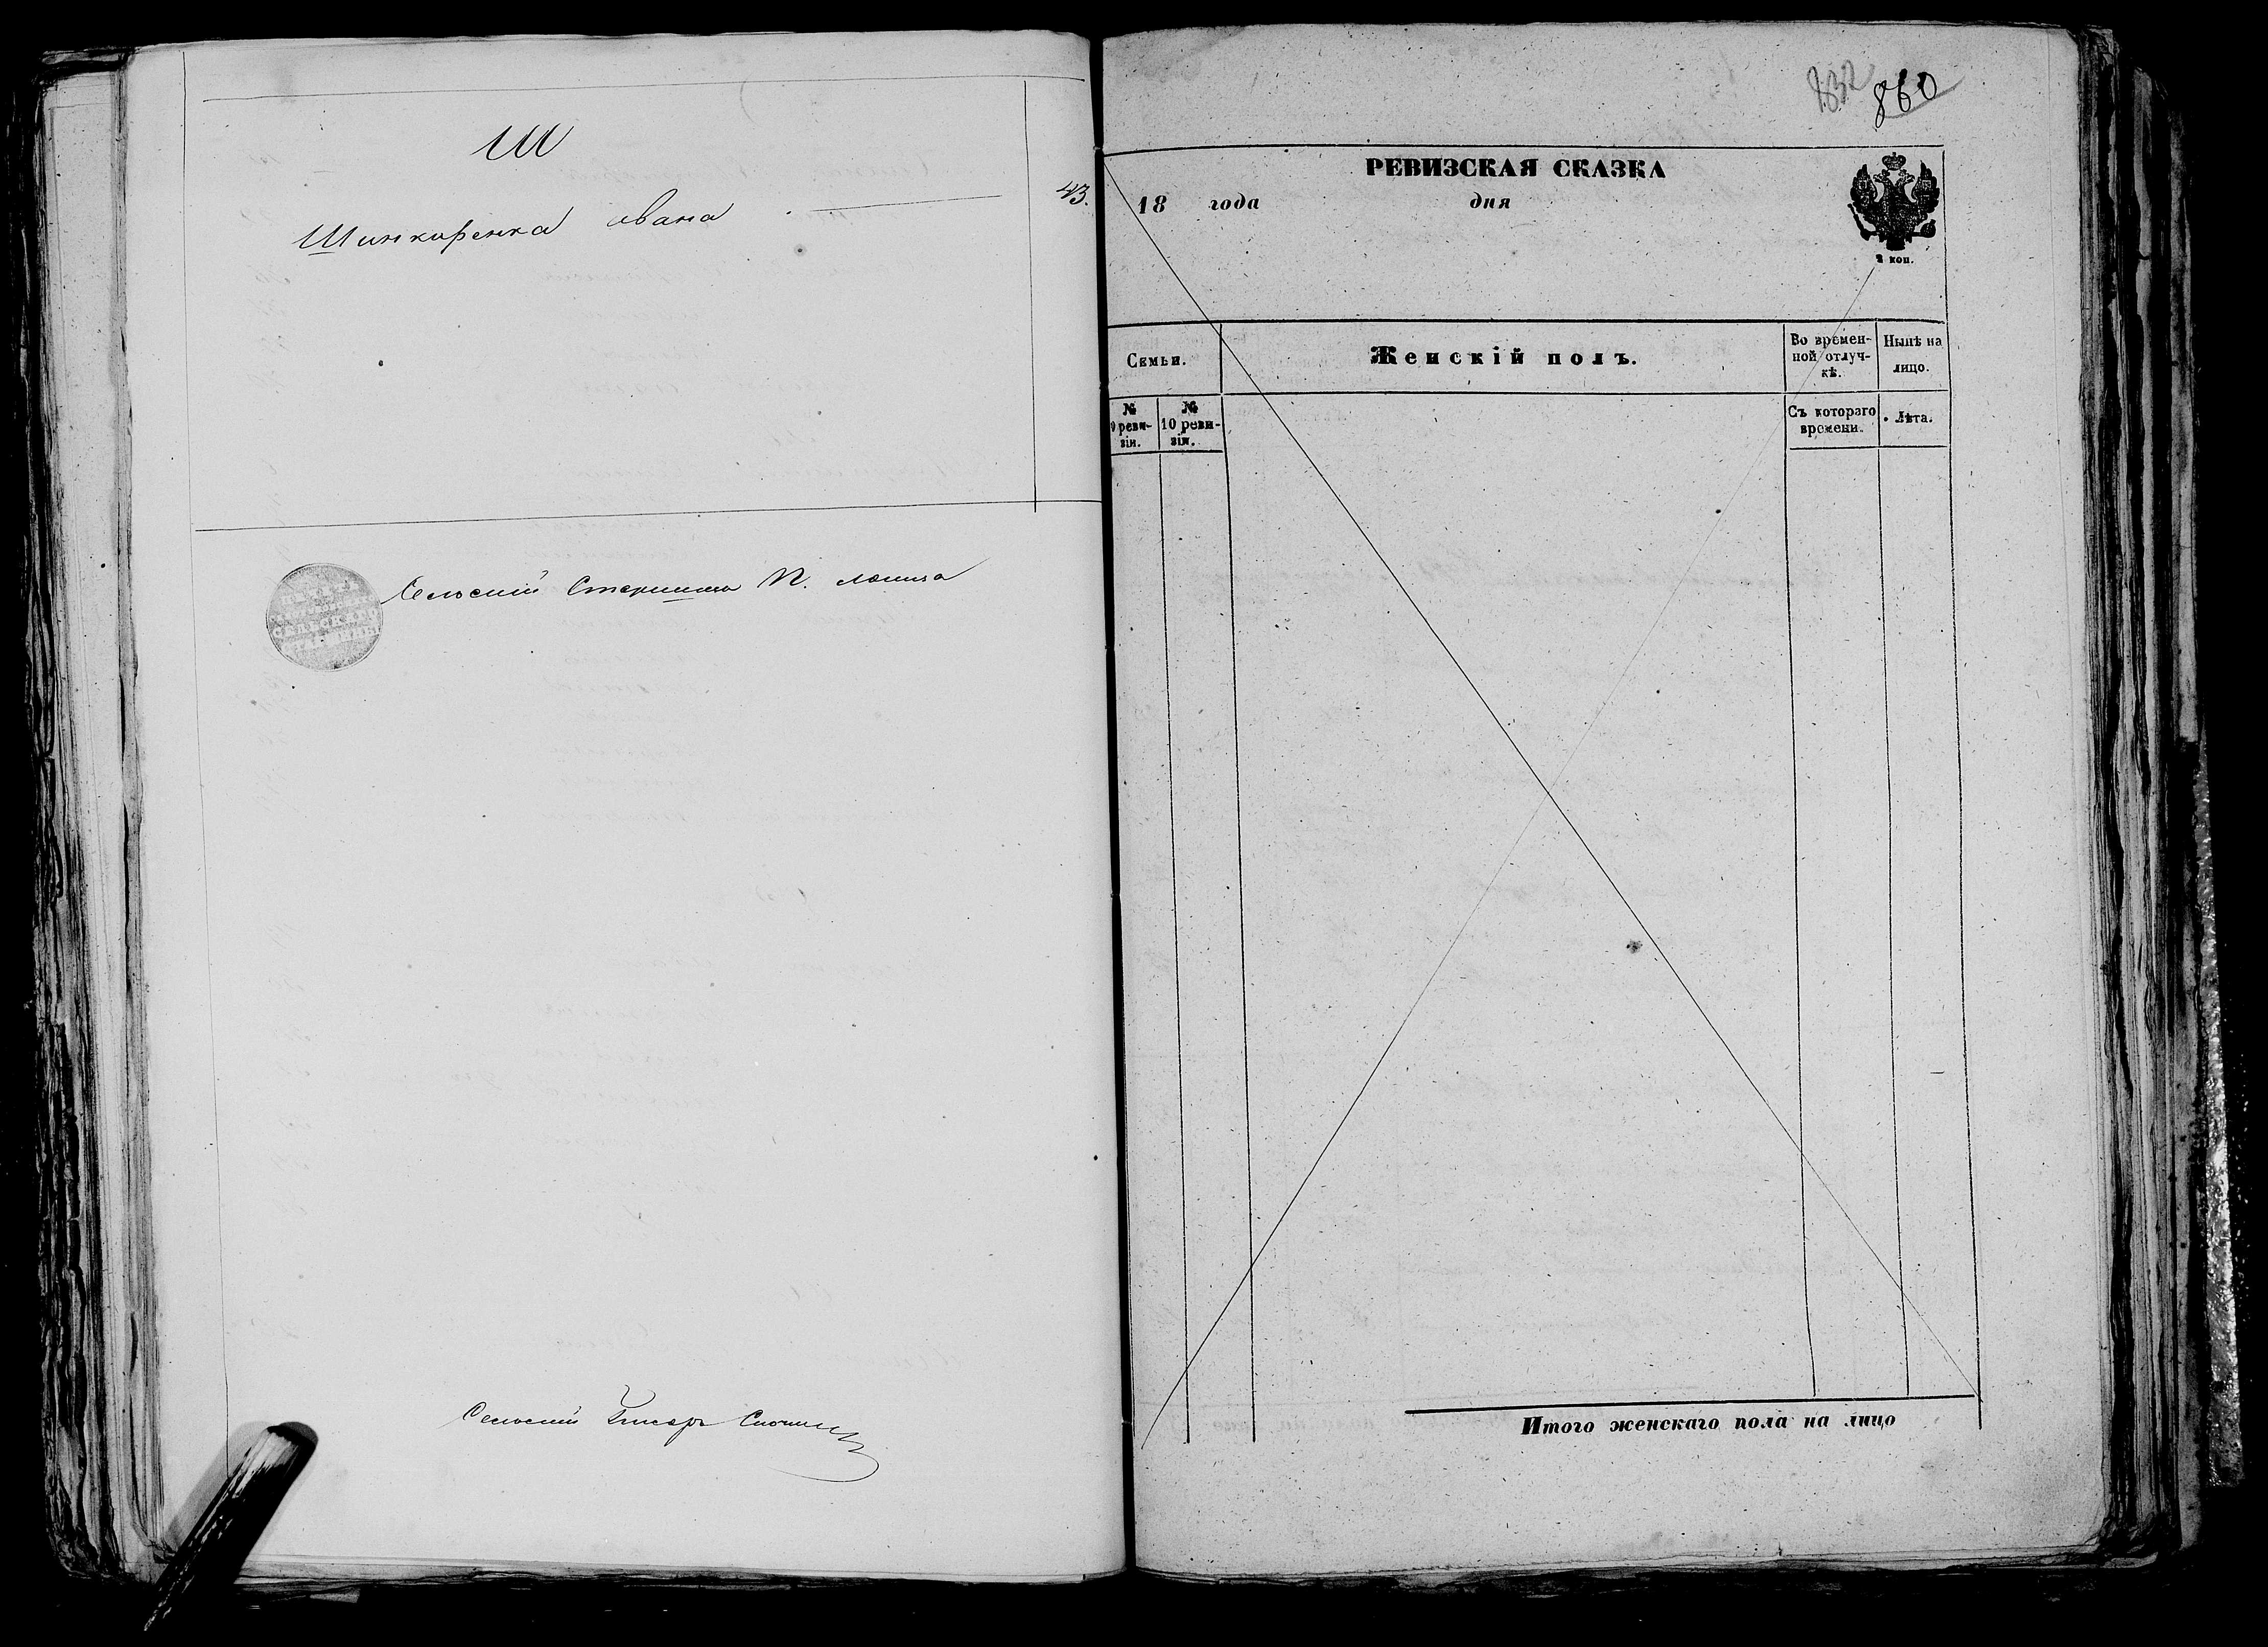 Ш
Шинкоренка Ивана 43.
Сельский Старшина П.
СЕЛЬСКАГО
Сельский Писарь
832 860
РЕВИЗСКАЯ СКАЗКА
18 года дня
2 коп.
Семьи.
Женскій полъ.
Во времен-
ной отлуч-
кѣ.
Нынѣ на
лицо.
№
9 реви-
зіи.
№
10 реви-
зіи.
Съ котораго
времени.
Лѣта.
Итого женскаго пола на лицо